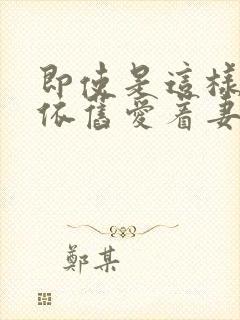 即使是這樣
依舊愛着妻
鄭某